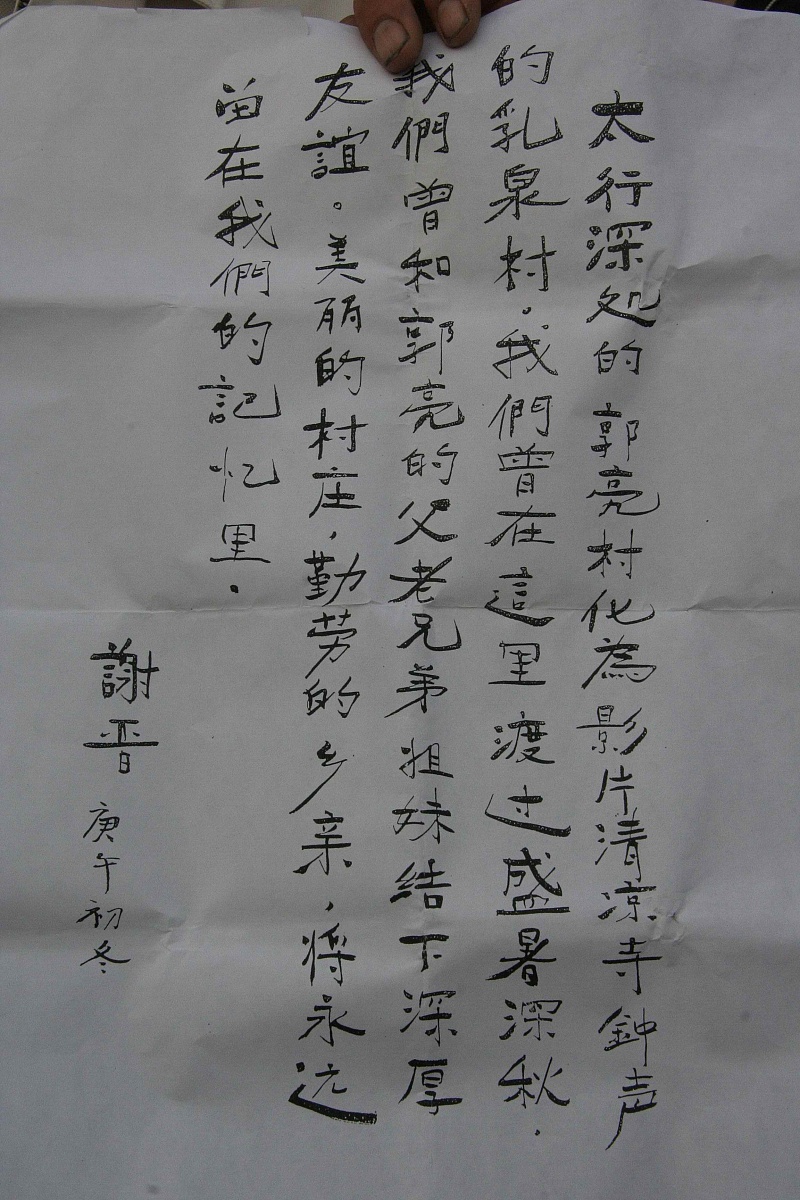 太行深处的郭亮村化為影片清凉寺鈡声
的乳泉村。我們曾在這里渡过盛暑深秋．
我們曾和郭亮的父老兄弟姐妹结下深厚
友誼。美丽的村庄，勤劳的乡亲，将永远
留在我們的記忆里．
謝晋 庚午初冬